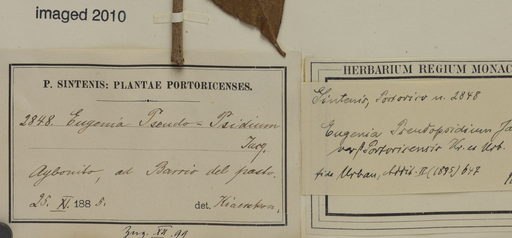 imaged 2010
P. SINTENIS: PLANTAE PORTORICENSES.
2848. Eugenia Pseudo=Psidium
Jacq.
Aybonito, ad Barrio del pasto.
25. XI. 1885. det. Kiaerskou.
HERBARIUM REGIUM MONAC
Sintenis, Portorico n. 2848
Eugenia Pseudopsidium Ja
var β Portoricensis Kr. et Urb.
fide Urban, Addit. II (1895) 647